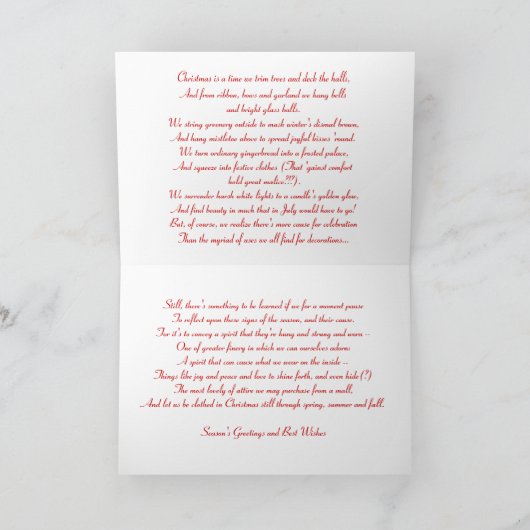 Christmas is a time we trim trees and deck the halls,
And from ribbon, bows and garland we hang bells
and bright glass balls.
We string greenery outside to mask winter's dismal brown,
And hang mistletoe above to spread joyful kisses 'round.
We turn ordinary gingerbread into a frosted palace,
And squeeze into festive clothes (That 'gainst comfort
hold great malice?!?).
We surrender harsh white lights to a candle's golden glow,
And find beauty in much that in July would have to go!
But, of course, we realize there's more cause for celebration
Than the myriad of uses we all find for decorations...
Still, there's something to be learned if we for a moment pause
To reflect upon these signs of the season, and their cause.
For it's to convey a spirit that they're hung and strung and worn --
One of greater finery in which we can ourselves adorn
A spirit that can cause what we wear on the inside --
Things like joy and peace and love to shine forth, and even hide(?)
The most lovely of attire we may purchase from a mall,
..And let us be clothed in Christmas still through spring, summer and fall.
Season's Greetings and Best Wishes